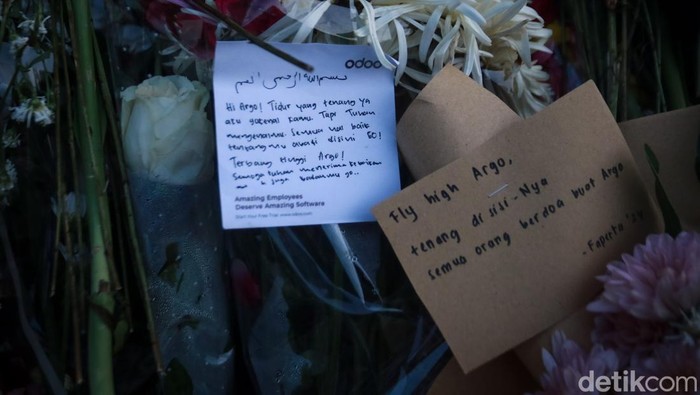 odoo
بسم الله الرحمن الرحيم
Hi Argo! Tidur yang tenang ya
aku gakenal kamu. Tapi Tuhan
mengenalmu. Semua hal baik
tentang mu abadi disini GO!
Terbang tinggi Argo!
Semoga tuhan menerima kebaikan
Amazing Employees
Deserve Amazing Software
Start Your Free Trial - www.odoo.com
Fly high Argo,
tenang di sisi-Nya
semua orang berdoa buat Argo
- Faperta '24
detikcom